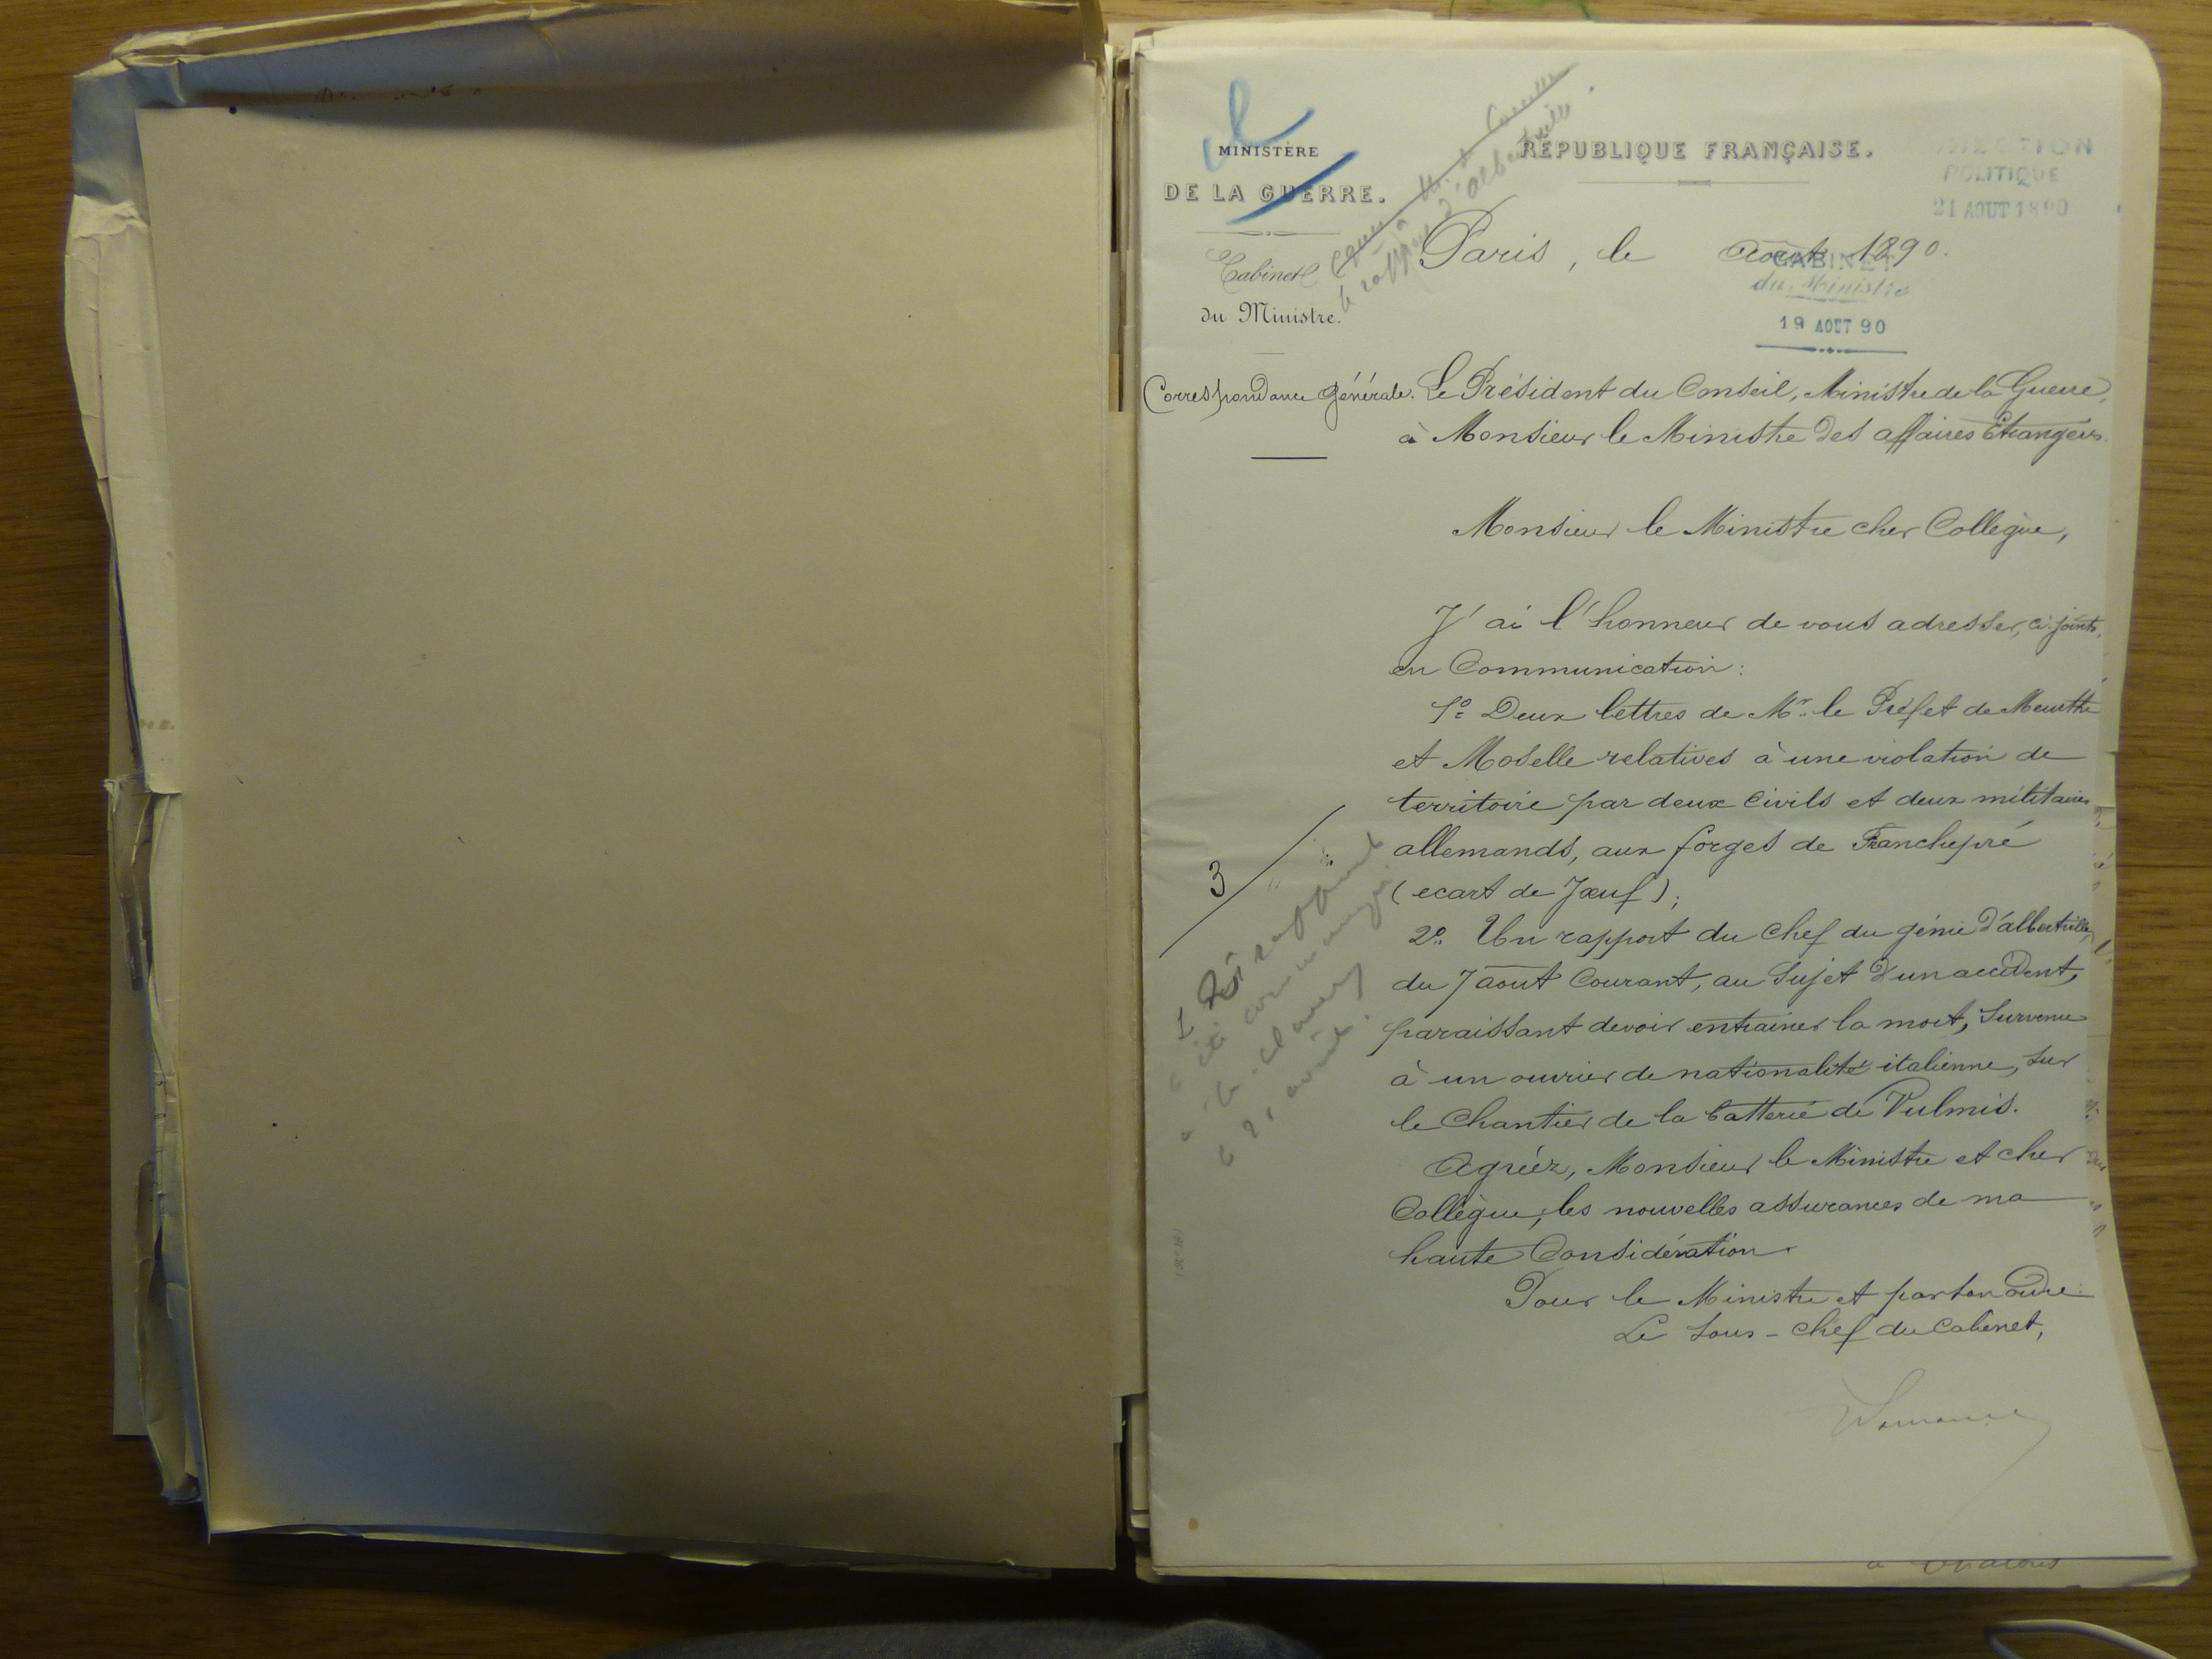 MINISTÈRE
DE LA GUERRE.
Cabinet
du Ministre.
Correspondance Générale.
RÉPUBLIQUE FRANÇAISE.
POLITIQUE
21 AOUT 1890
Paris, le Août 1890.
CABINET
du Ministre
19 AOUT 90
le rapport d'Albertville
Le Président du Conseil, Ministre de la Guerre,
à Monsieur le Ministre des affaires Etrangères.
Monsieur le Ministre cher Collègue,
J'ai l'honneur de vous adresser, ci-joints,
en Communication :
1º Deux lettres de Mr. le Préfet de Meurthe
et Moselle relatives à une violation de
territoire par deux civils et deux militaires
allemands, aux forges de Franchepré
(ecart de Jœuf) ;
2º. Un rapport du chef du génie d'albertville,
du 7 aout Courant, au Sujet d'un accident,
paraissant devoir entraîner la mort, Survenu
à un ouvrier de nationalité italienne, sur
le Chantier de la batterie de Vulmis.
Agréez, Monsieur le Ministre et cher
Collègue, les nouvelles assurances de ma
haute Considération.
Pour le Ministre et par son ordre :
Le Sous-Chef du Cabinet,
3